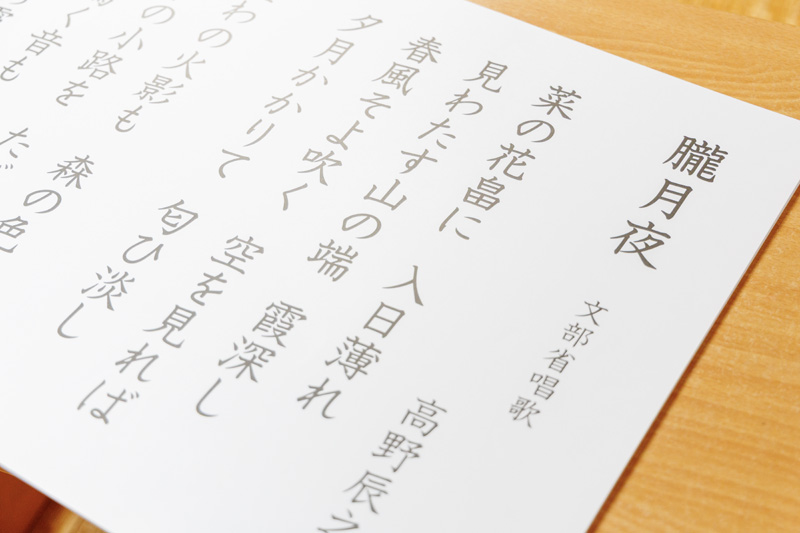 朧月夜
文部省唱歌
高野辰之
菜の花畠に 入日薄れ
見わたす山の端 霞深し
春風そよ吹く 空を見れば
夕月かかりて 匂ひ淡し
わの火影も 森の色
の小路を たど
く音も